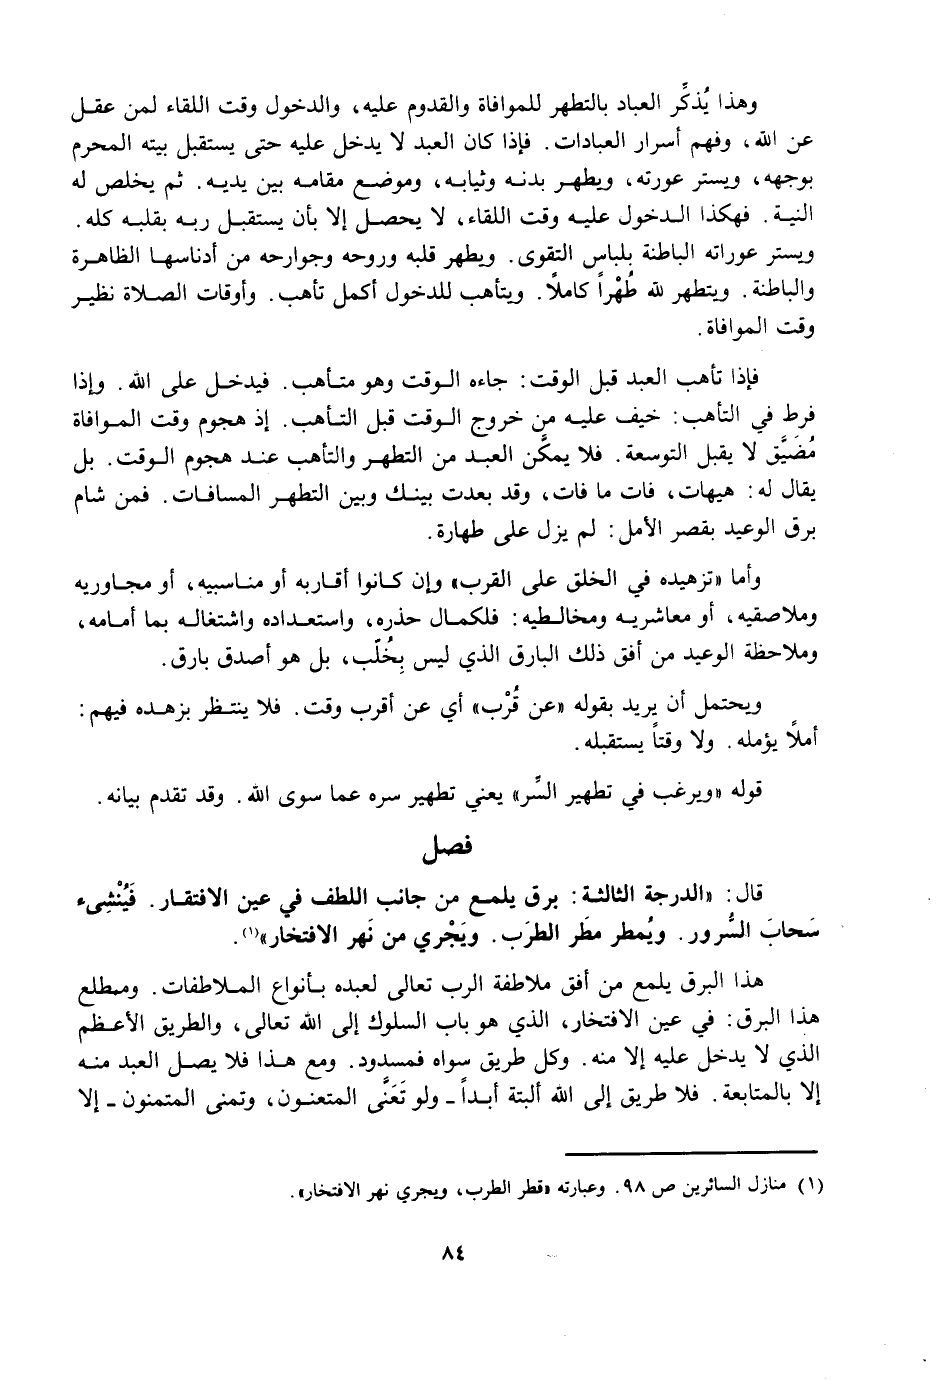 وهذا يُذكِّر العباد بالتطهر للموافاة والقدوم عليه، والدخول وقت اللقاء لمن عقل
عن الله، وفهم أسرار العبادات. فإذا كان العبد لا يدخل عليه حتى يستقبل بيته المحرم
بوجهه، ويستر عورته، ويطهر بدنه وثيابه، وموضع مقامه بين يديه. ثم يخلص له
النية. فهكذا الدخول عليه وقت اللقاء، لا يحصل إلا بأن يستقبل ربه بقلبه كله.
ويستر عوراته الباطنة بلباس التقوى. ويطهر قلبه وروحه وجوارحه من أدناسها الظاهرة
والباطنة. ويتطهر لله طُهْراً كاملاً. ويتأهب للدخول أكمل تأهب. وأوقات الصلاة نظير
وقت الموافاة.
فإذا تأهب العبد قبل الوقت: جاءه الوقت وهو متأهب. فيدخل على الله. وإذا
فرط في التأهب: خيف عليه من خروج الوقت قبل التأهب. إذ هجوم وقت الموافاة
مُضَيَّق لا يقبل التوسعة. فلا يمكَّن العبد من التطهر والتأهب عند هجوم الوقت. بل
يقال له: هيهات، فات ما فات، وقد بعدت بينك وبين التطهر المسافات. فمن شام
برق الوعيد بقصر الأمل: لم يزل على طهارة.
وأما «تزهيده في الخلق على القرب» وإن كانوا أقاربه أو مناسبيه، أو مجاوريه
وملاصقيه، أو معاشريه ومخالطيه: فلكمال حذره، واستعداده واشتغاله بما أمامه،
وملاحظة الوعيد من أفق ذلك البارق الذي ليس بِخُلَّب، بل هو أصدق بارق.
ويحتمل أن يريد بقوله «عن قُرْب» أي عن أقرب وقت. فلا ينتظر بزهده فيهم:
أملاً يؤمله. ولا وقتاً يستقبله.
قوله «ويرغب في تطهير السِّر» يعني تطهير سره عما سوى الله. وقد تقدم بيانه.
فصل
قال: «الدرجة الثالثة: برق يلمع من جانب اللطف في عين الافتقار. فَيُنْشِىء
سَحابَ السُّرور. ويُمطر مطَر الطرَب. ويَجْري من نَهر الافتخار»(١).
هذا البرق يلمع من أفق ملاطفة الرب تعالى لعبده بأنواع الملاطفات. ومطلع
هذا البرق: في عين الافتخار، الذي هو باب السلوك إلى الله تعالى، والطريق الأعظم
الذي لا يدخل عليه إلا منه. وكل طريق سواه فمسدود. ومع هذا فلا يصل العبد منه
إلا بالمتابعة. فلا طريق إلى الله ألبتة أبداً ـ ولو تَعَنَّى المتعنون، وتمنى المتمنون ـ إلا
(١) منازل السائرين ص ٩٨. وعبارته «قطر الطرب، ويجري نهر الافتخار».
٨٤